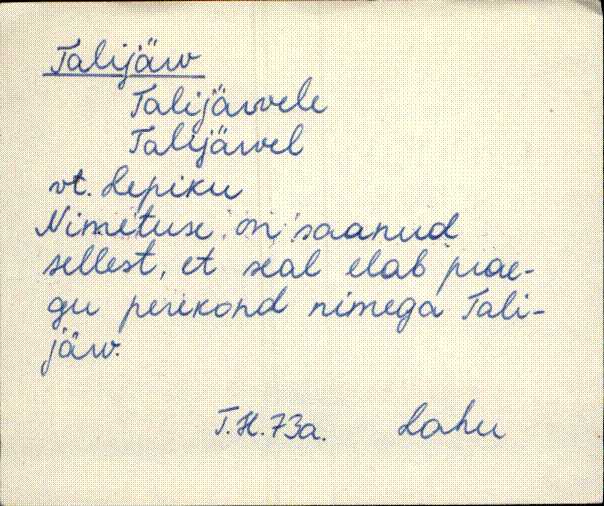 Talijärv
Talijärvele
Talijärvel
vt. Lepiku
Nimetuse on saanud
sellest, et seal elab prae-
gu perekond nimega Tali-
järv.
T.H. 73a. Lahu